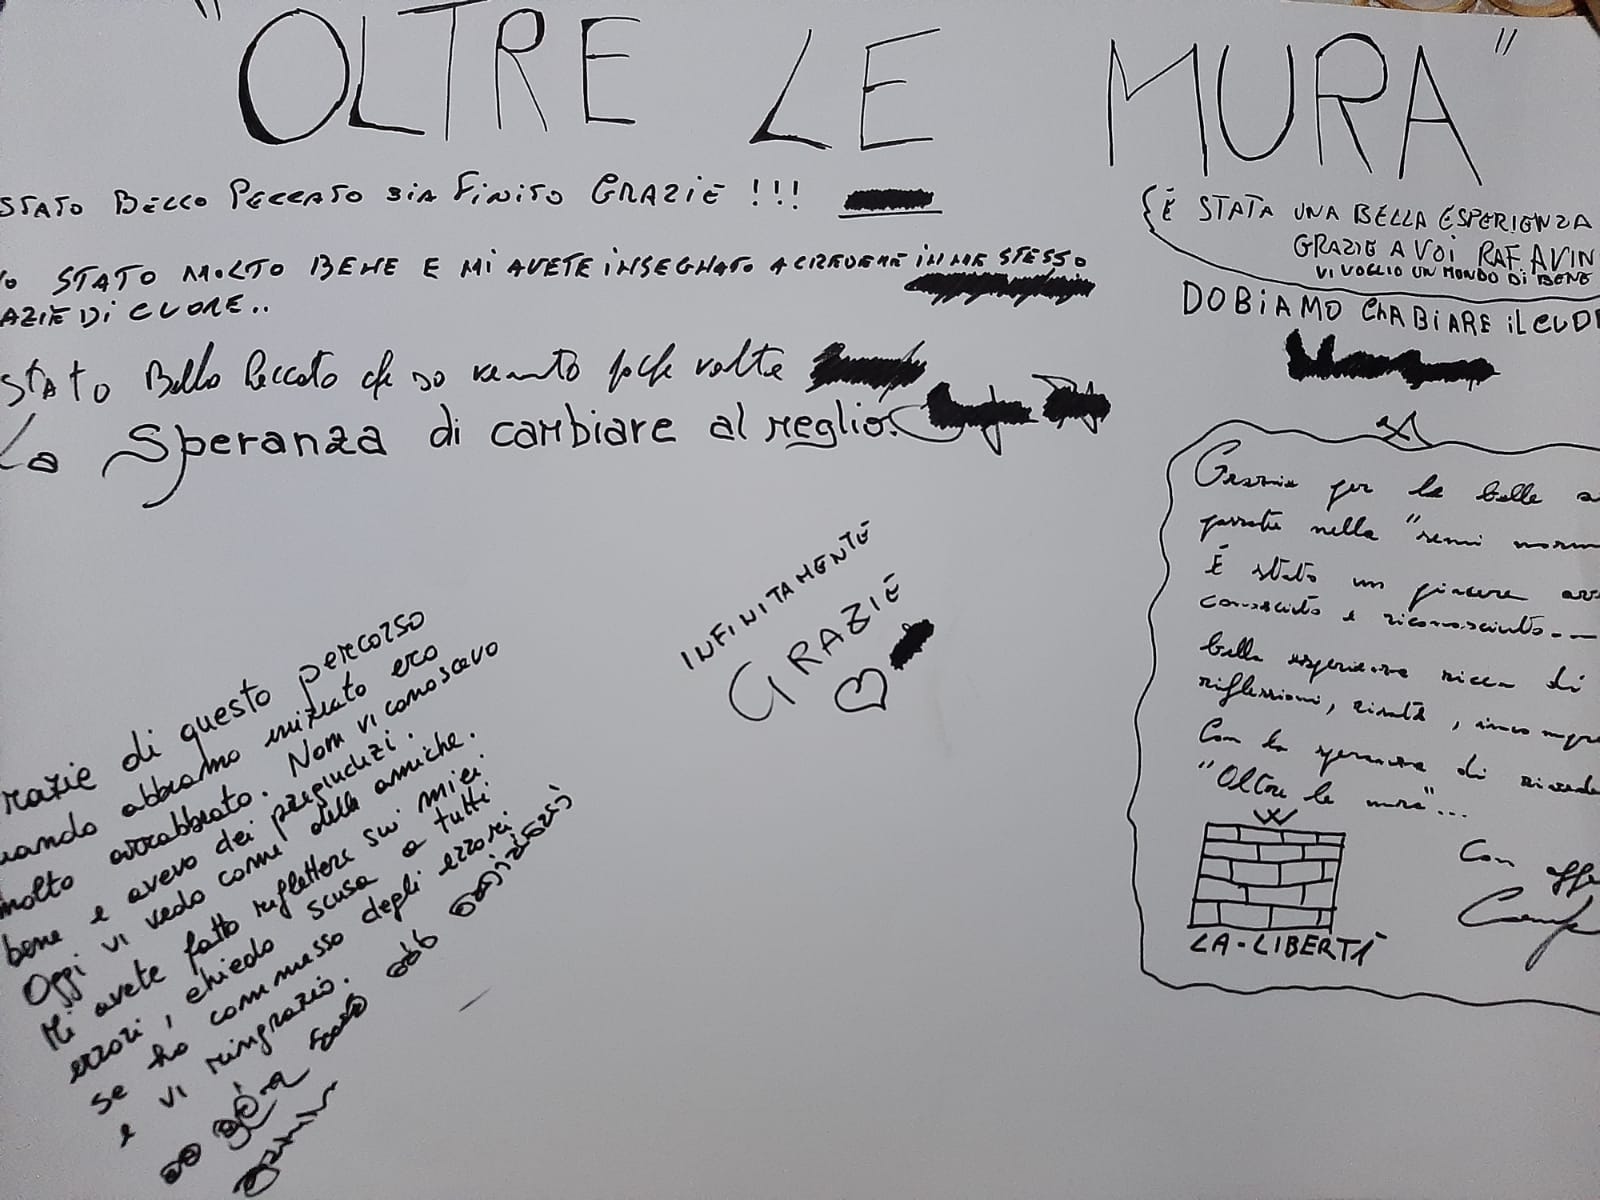 "OLTRE LE MURA"
STATO BELLO PECCATO SIA FINITO GRAZIE !!!
STATO MOLTO BENE E MI AVETE INSEGNATO A CREDERE IN ME STESSO
AZIE DI CUORE..
STATO Bello Peccato che so venuto poche volte
La Speranza di cambiare al meglio.
È STATA UNA BELLA ESPERIENZA
GRAZIE A VOI RAF AVIN
VI VOGLIO UN MONDO DI BENE
DOBIAMO CHABIARE IL CUO
Grazie per le belle
passate nella "semi norm
È stato un piacere av
conosciuto e riconosciuto...
bella esperienza ricca di
riflessioni, risate,
Con la speranza di
"Oltre le mura"...
LA-LIBERTÀ
Con affe
INFINITAMENTE
GRAZIE
razie di questo percorso
uando abbiamo iniziato ero
molto arrabbiato. Non vi conoscevo
bene e avevo dei pregiudizi.
Oggi vi vedo come delle amiche.
Mi avete fatto riflettere su' miei
errori, chiedo scusa a tutti
se ho commesso degli errori
e vi ringrazio.